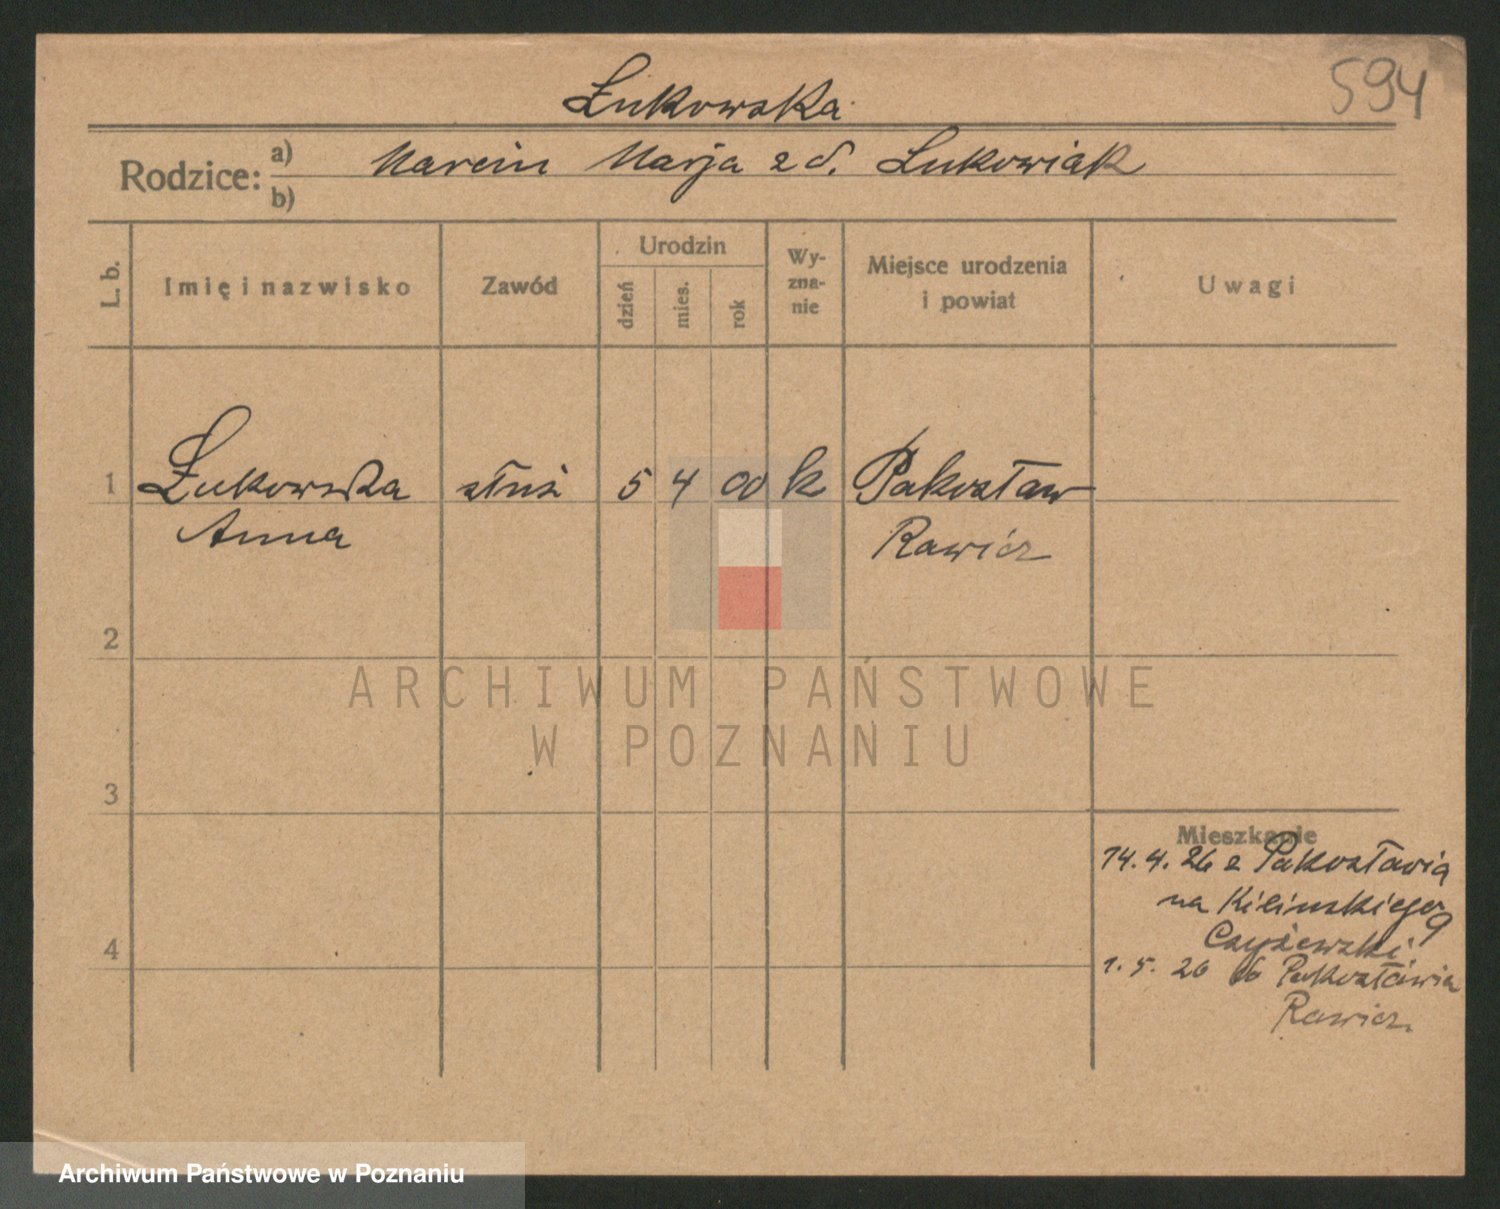 594
Łukowska
Rodzice: a) b)
Marcin Marja z d. Łukowiak
L. b.
Imię i nazwisko
Zawód
Urodzin
dzień
mies.
rok
Wy-
zna-
nie
Miejsce urodzenia
i powiat
Uwagi
1 Łukowska służ 5 4 00 k Pakosław
Anna Rawicz
2
ARCHIWUM PAŃSTWOWE
W POZNANIU
3
Mieszkanie
14. 4. 26 z Pakosławia
na Kilinskiego 9
Czyżewski
4
1. 5. 26 do Pakosławia
Rawicz
Archiwum Państwowe w Poznaniu